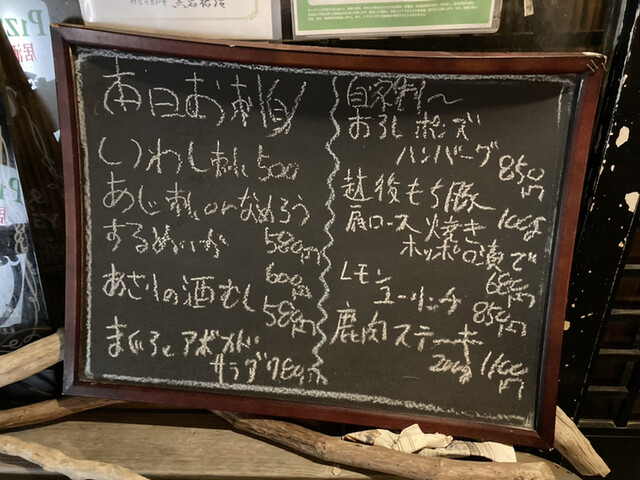 本日お刺身
いわし刺し 500
あじ 刺し or なめろう
580円
するめいか
600円
あさりの酒むし
580円
まぐろとアボカド
サラダ 780円
自家製
おろしポンズ
ハンバーグ
850円
越後もち豚
肩ロース焼き 100g
ポッポロ漬で
680円
レモン
ユーリンチ
850円
鹿肉ステーキ
200g 1600円
Piz
居酒